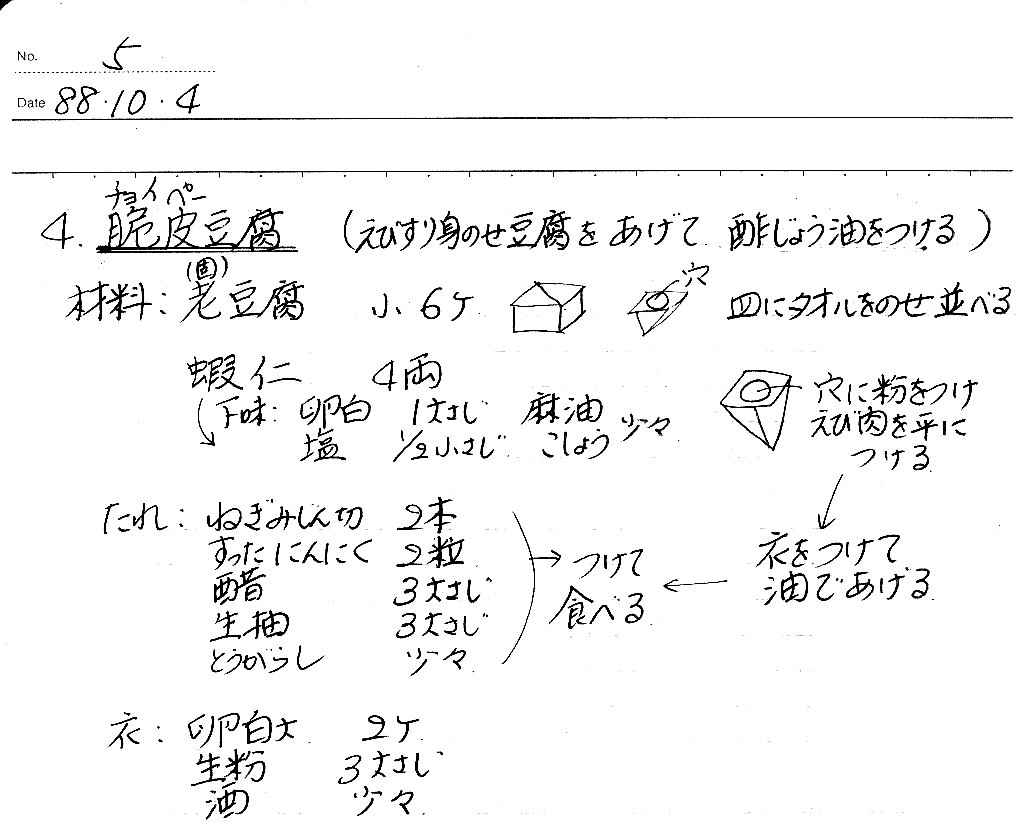 No. 5
Date 88・10・4
チョイ ペー
4. 脆皮豆腐 (えびすり身のせ豆腐をあげて 酢じょう油をつける)
(固)
材料: 老豆腐 小6ケ 穴 皿にタオルをのせ並べる
蝦仁 4両
下味: 卵白 1大さじ 麻油
塩 1/2小さじ こしょう 少々
穴に粉をつけ
えび肉を平に
つける
たれ: ねぎみじん切 2本
すったにんにく 2粒
醋 3大さじ
生抽 3大さじ
とうがらし 少々
つけて
食べる
衣をつけて
油であげる
衣: 卵白大 2ケ
生粉 3大さじ
酒 少々